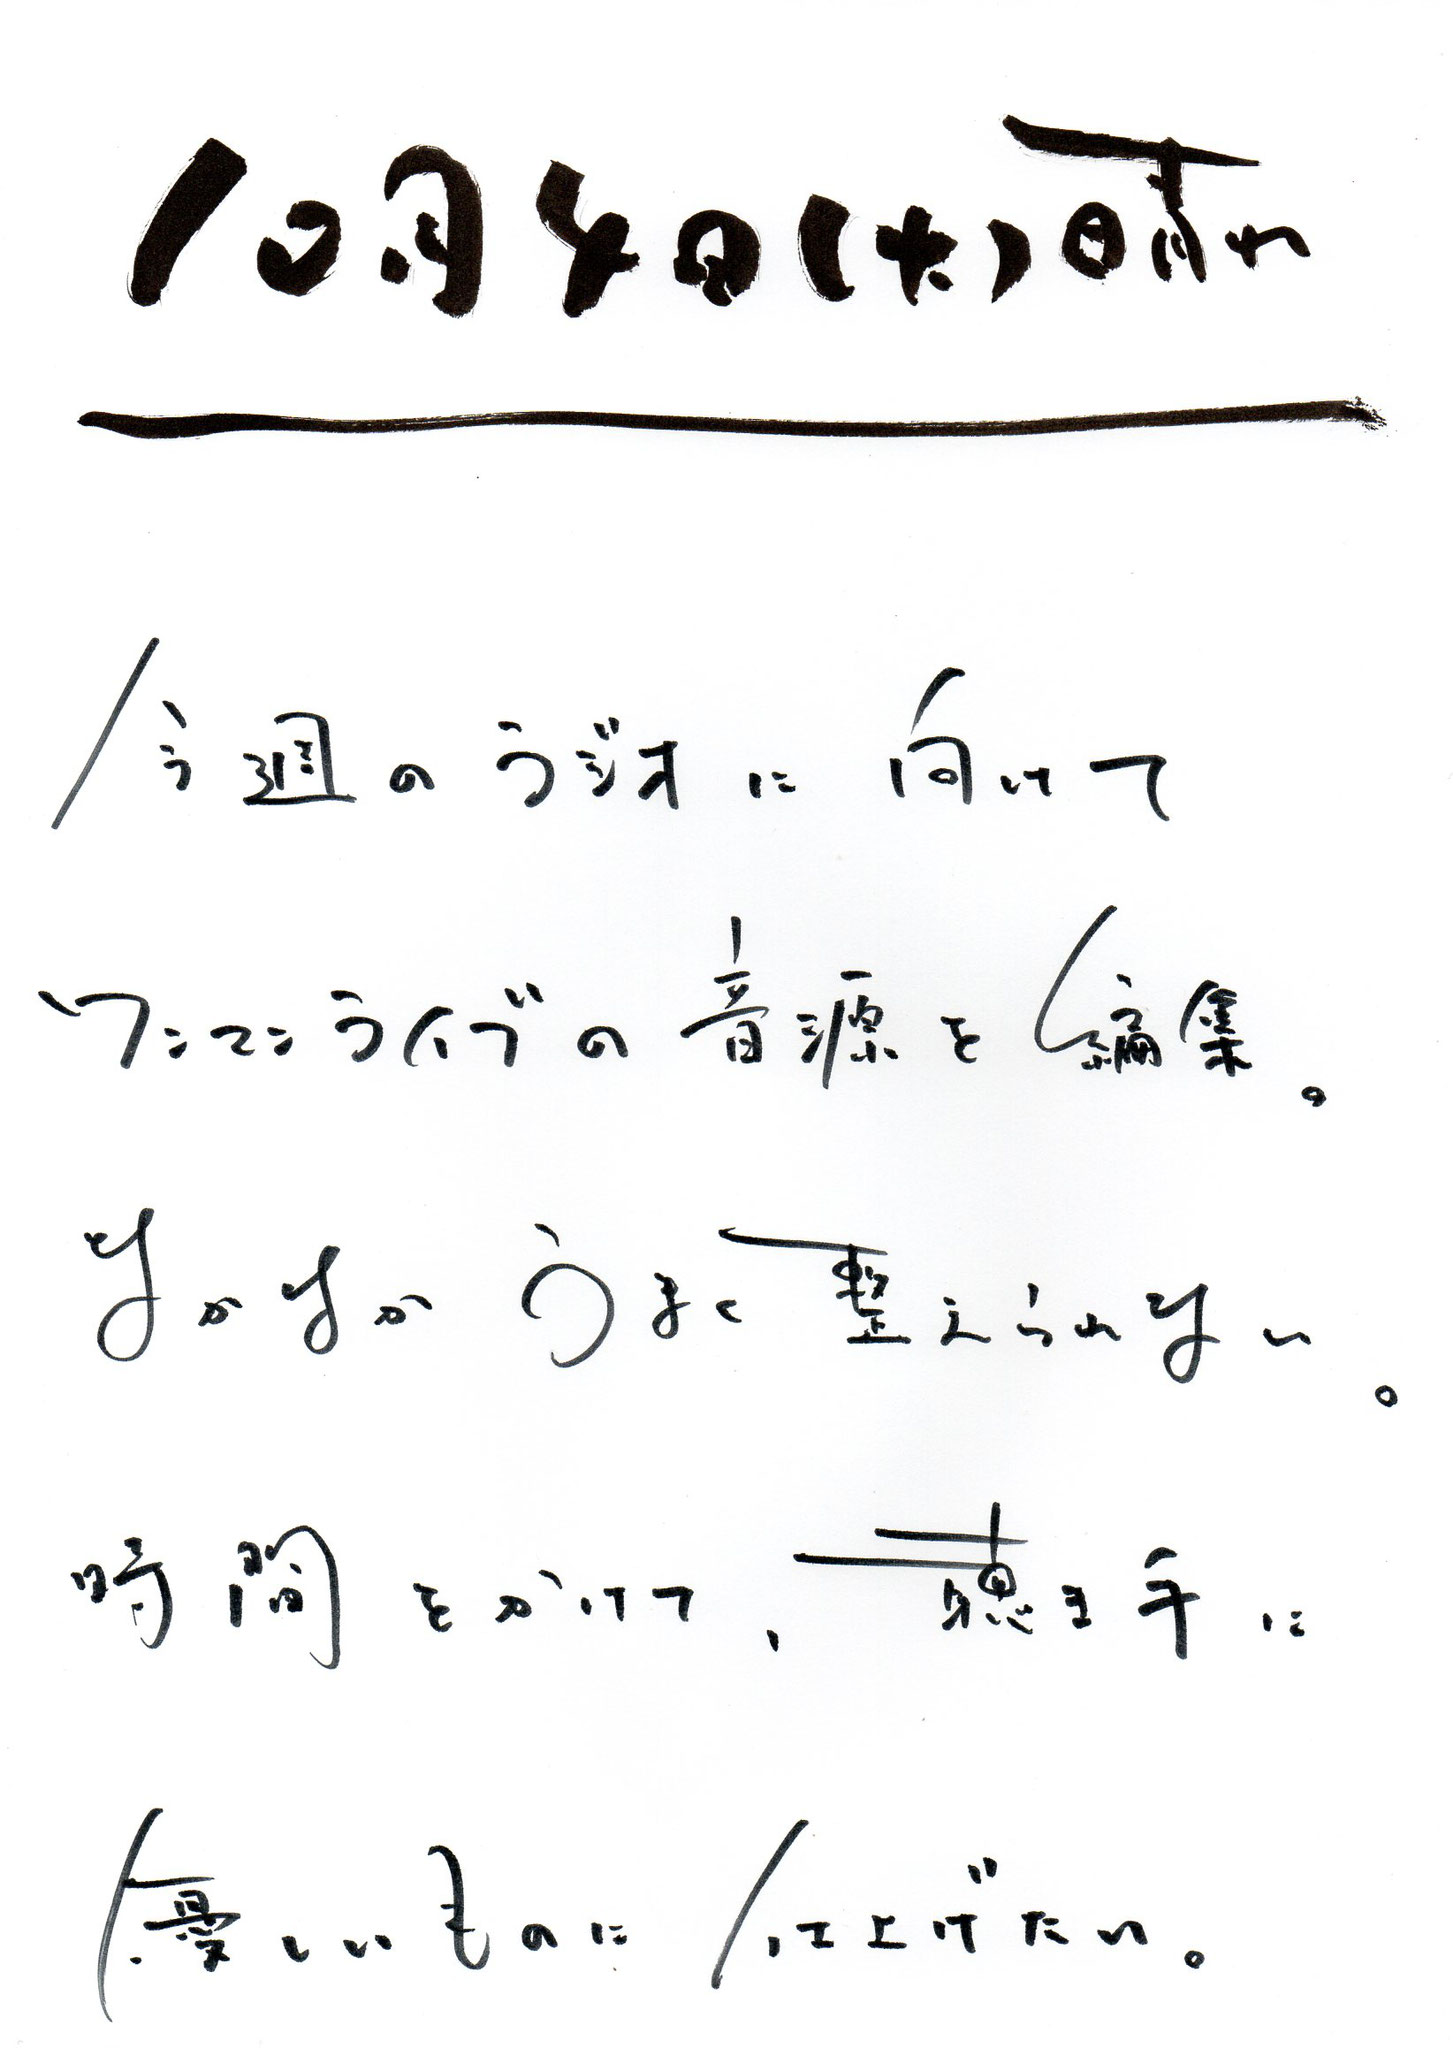 10月4日(火)晴れ
今週のラジオに向けて
ワンマンライブの音源を編集。
なかなかうまく整えられない。
時間をかけて、聴き手に
優しいものに仕上げたい。